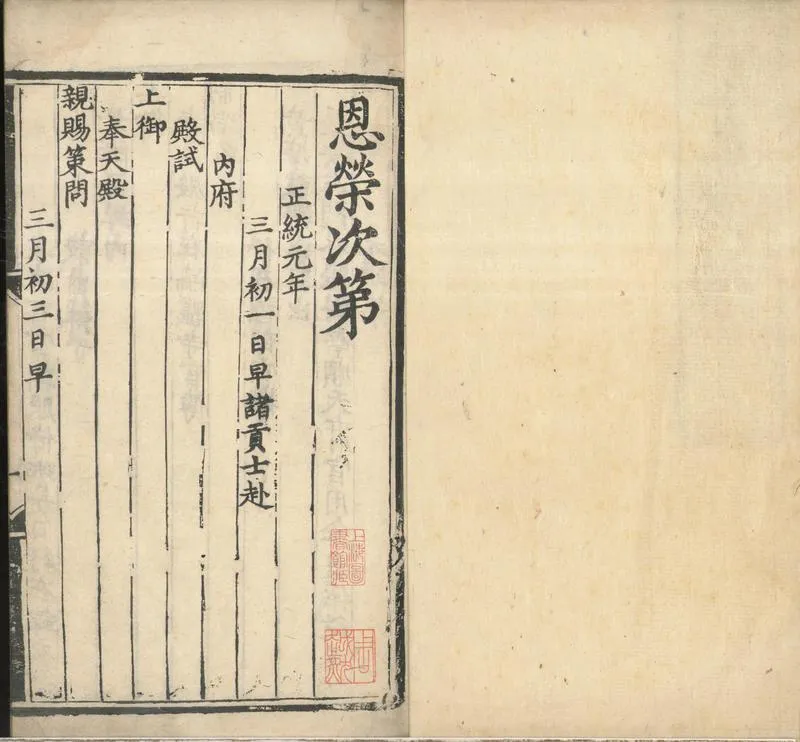 恩榮次第
正統元年
三月初一日早諸貢士赴
內府
殿試
上御
奉天殿
親賜策問
三月初三日早
上海圖書館藏